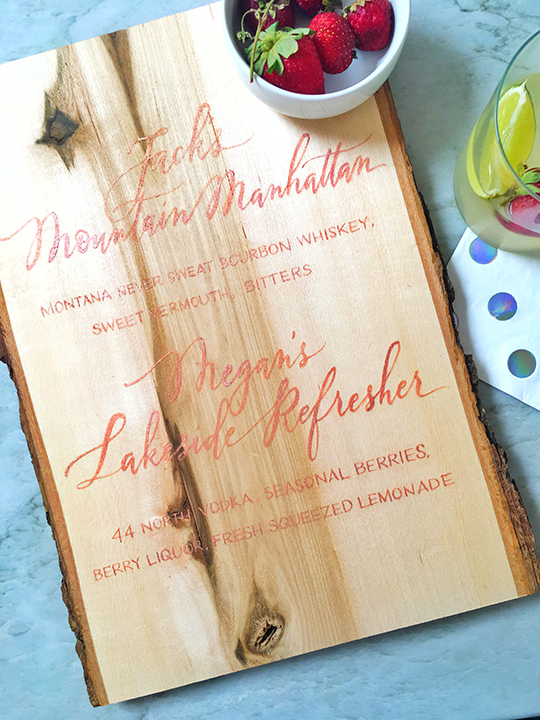 Jack's
Mountain Manhattan
MONTANA NEVER SWEAT BOURBON WHISKEY,
SWEET VERMOUTH, BITTERS
Megan's
Lakeside Refresher
44 NORTH VODKA, SEASONAL BERRIES,
BERRY LIQUOR, FRESH SQUEEZED LEMONADE